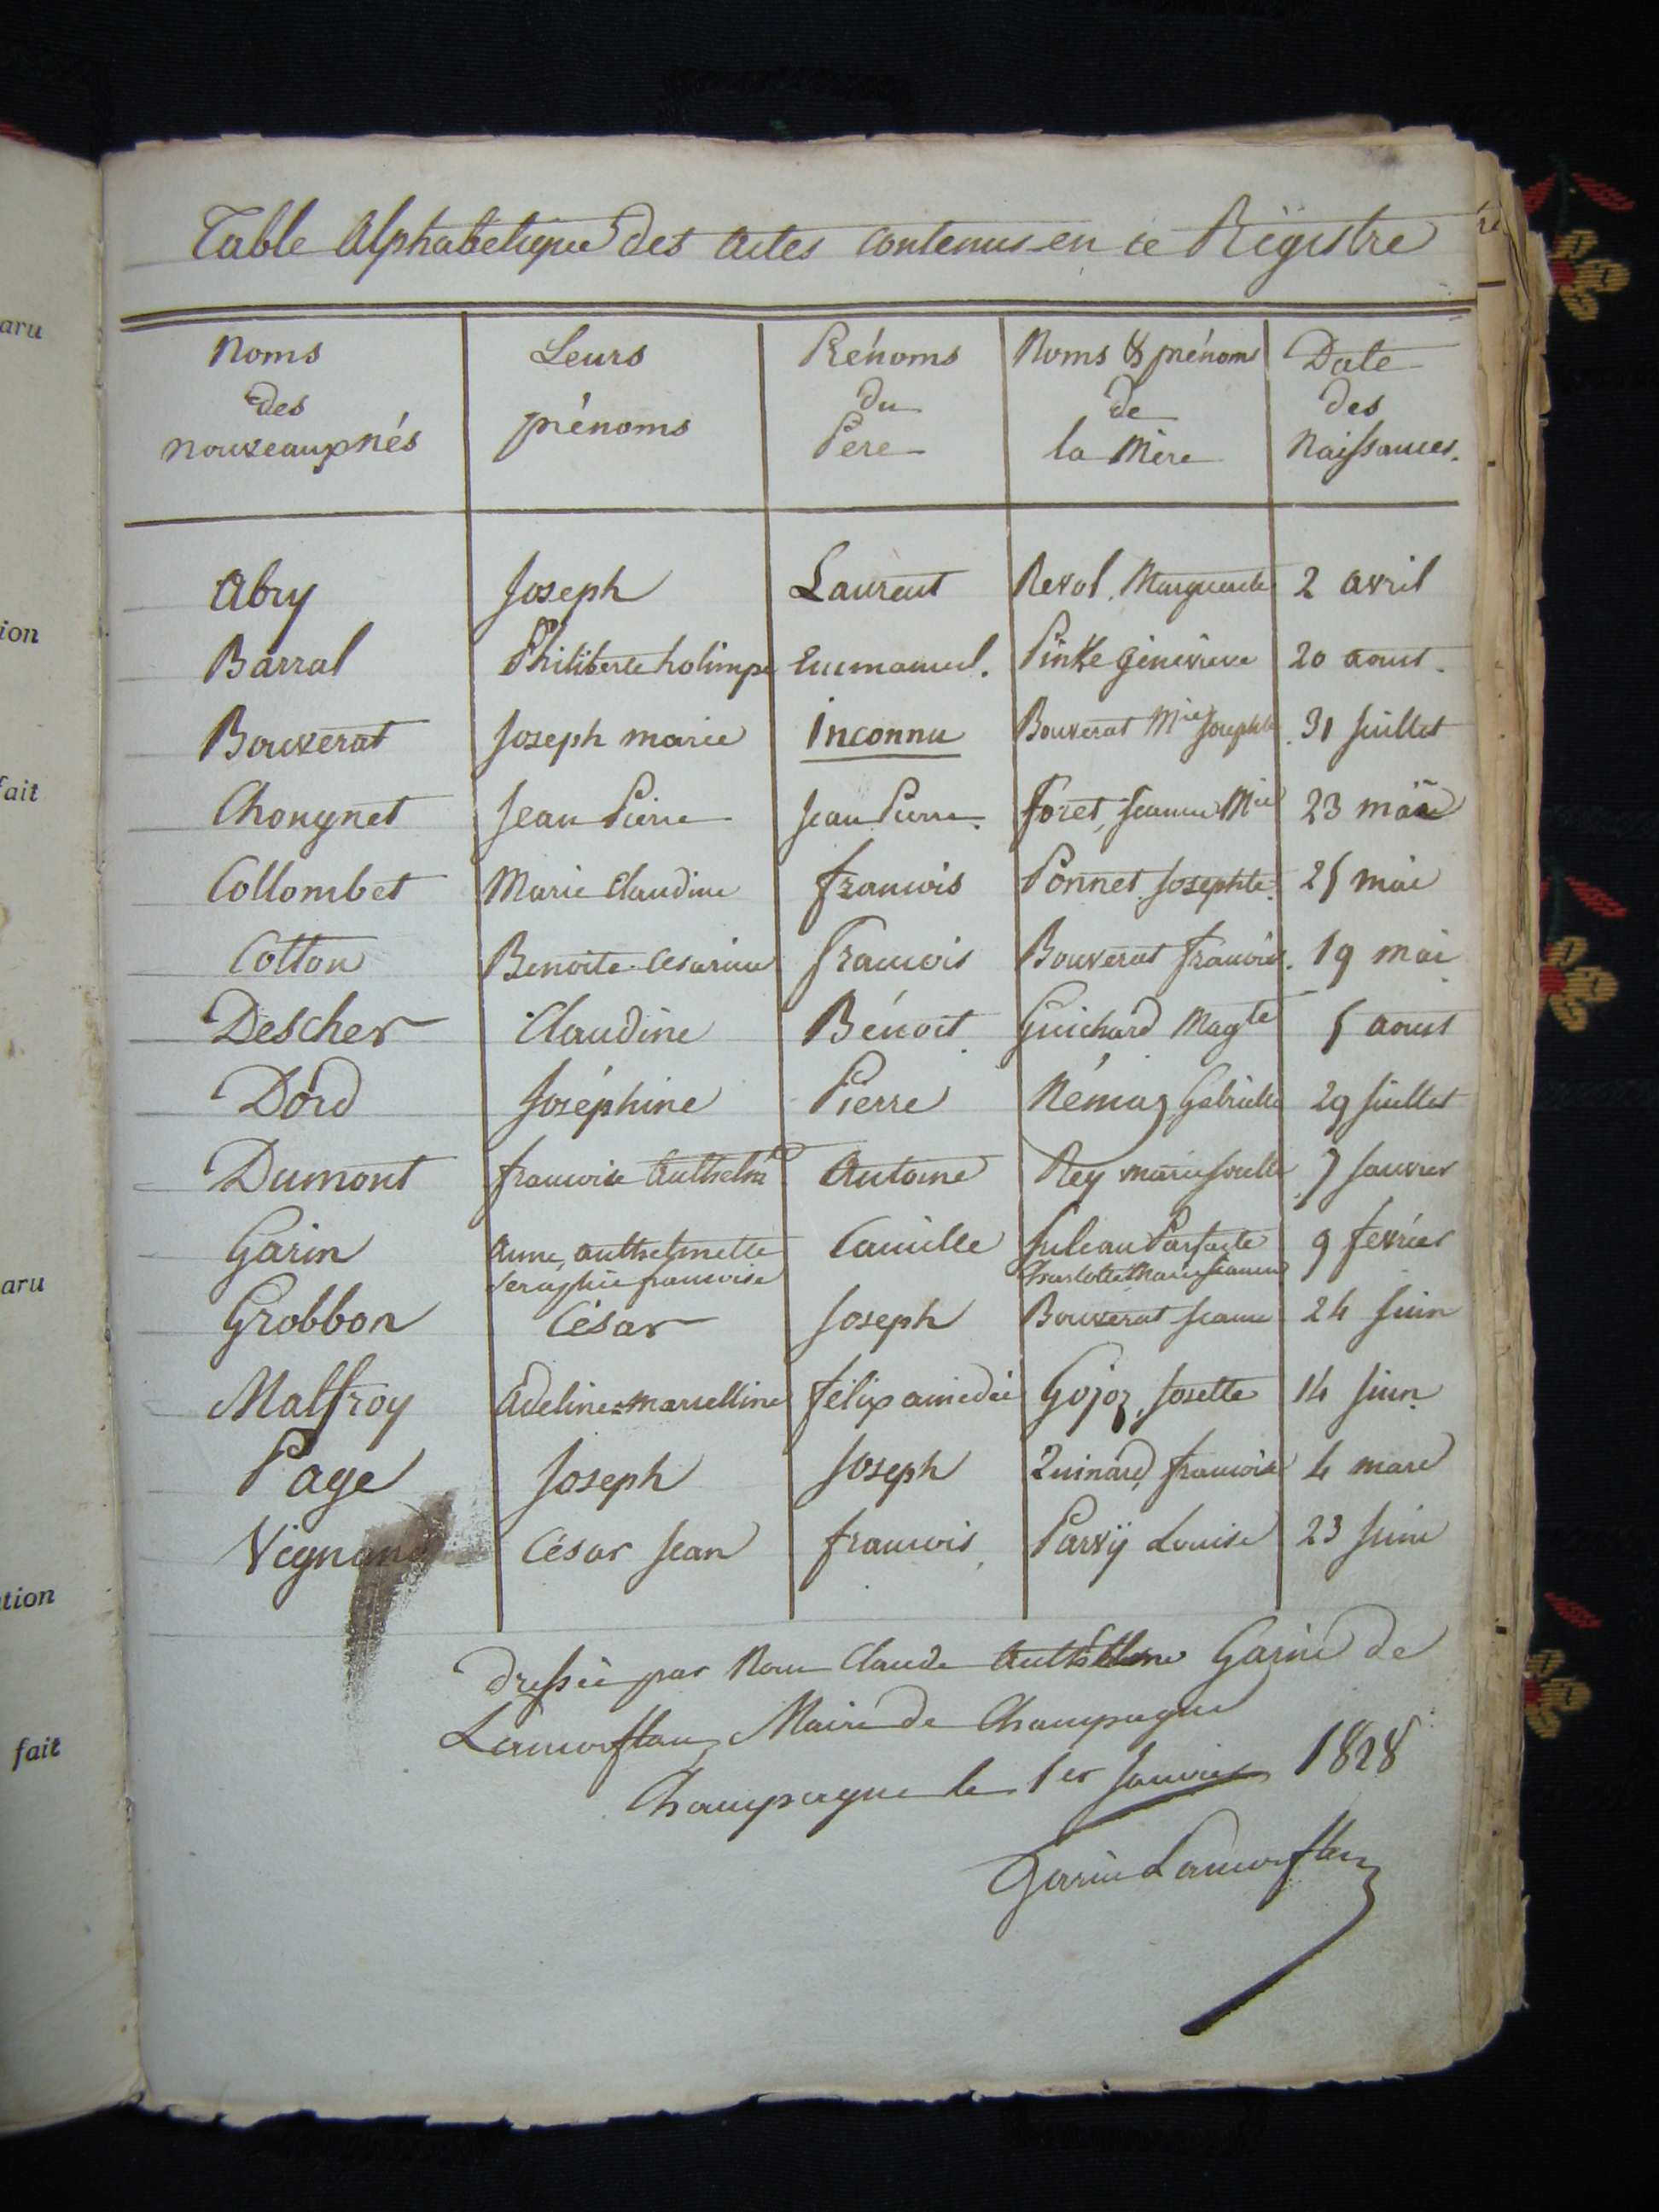 aru
ion
fait
aru
tion
fait
Table Alphabetique des actes contenus en ce Régistre
Noms
des
nouveaux nés
Leurs
prénoms
Prénoms
du
Pere
Noms & prénoms
de
la Mère
Date
des
Naissances.
Abry Joseph Laurent Revol Marguerite 2 avril
Barral Philiberte holimpe Enmanuel. genevieve 20 aout.
Bouverat Joseph marie inconnu Bouverat Mie Josephte 31 juillet
Chongnet Jean Pierre Jean Pierre Foret, Jeanne Mie 23 mai
Collombet Marie Claudine francois Ponnet Josephte. 25 mai
Cotton Benoite Cesarine francois Bouverat francoise. 19 mai
Descher Claudine Bénoit Guichard Magte 5 aout
Dord Joséphine Pierre Némoz Gabrielle 29 juillet
Dumont francoise Anthelme Antoine Rey marie Josette 7 janvier
Garin anne, anthelmette Camille Parfaite 9 fevrier
seraphie francoise Charlotte Marie Jeanne
Grobbon César Joseph Bouverat Jeanne 24 Juin
Malfroy Adeline=marcelline félix amedée Gojoz, Josette 14 juin
Page Joseph Joseph Quinard, francoise 4 mars
Vignand César Jean francois Louise 23 Juin
dressée par Nous Claude Anthelme Garin de
Lamorflan, Maire de Champagne
Champagne le 1er Janvier 1828
Garin Lamorflan